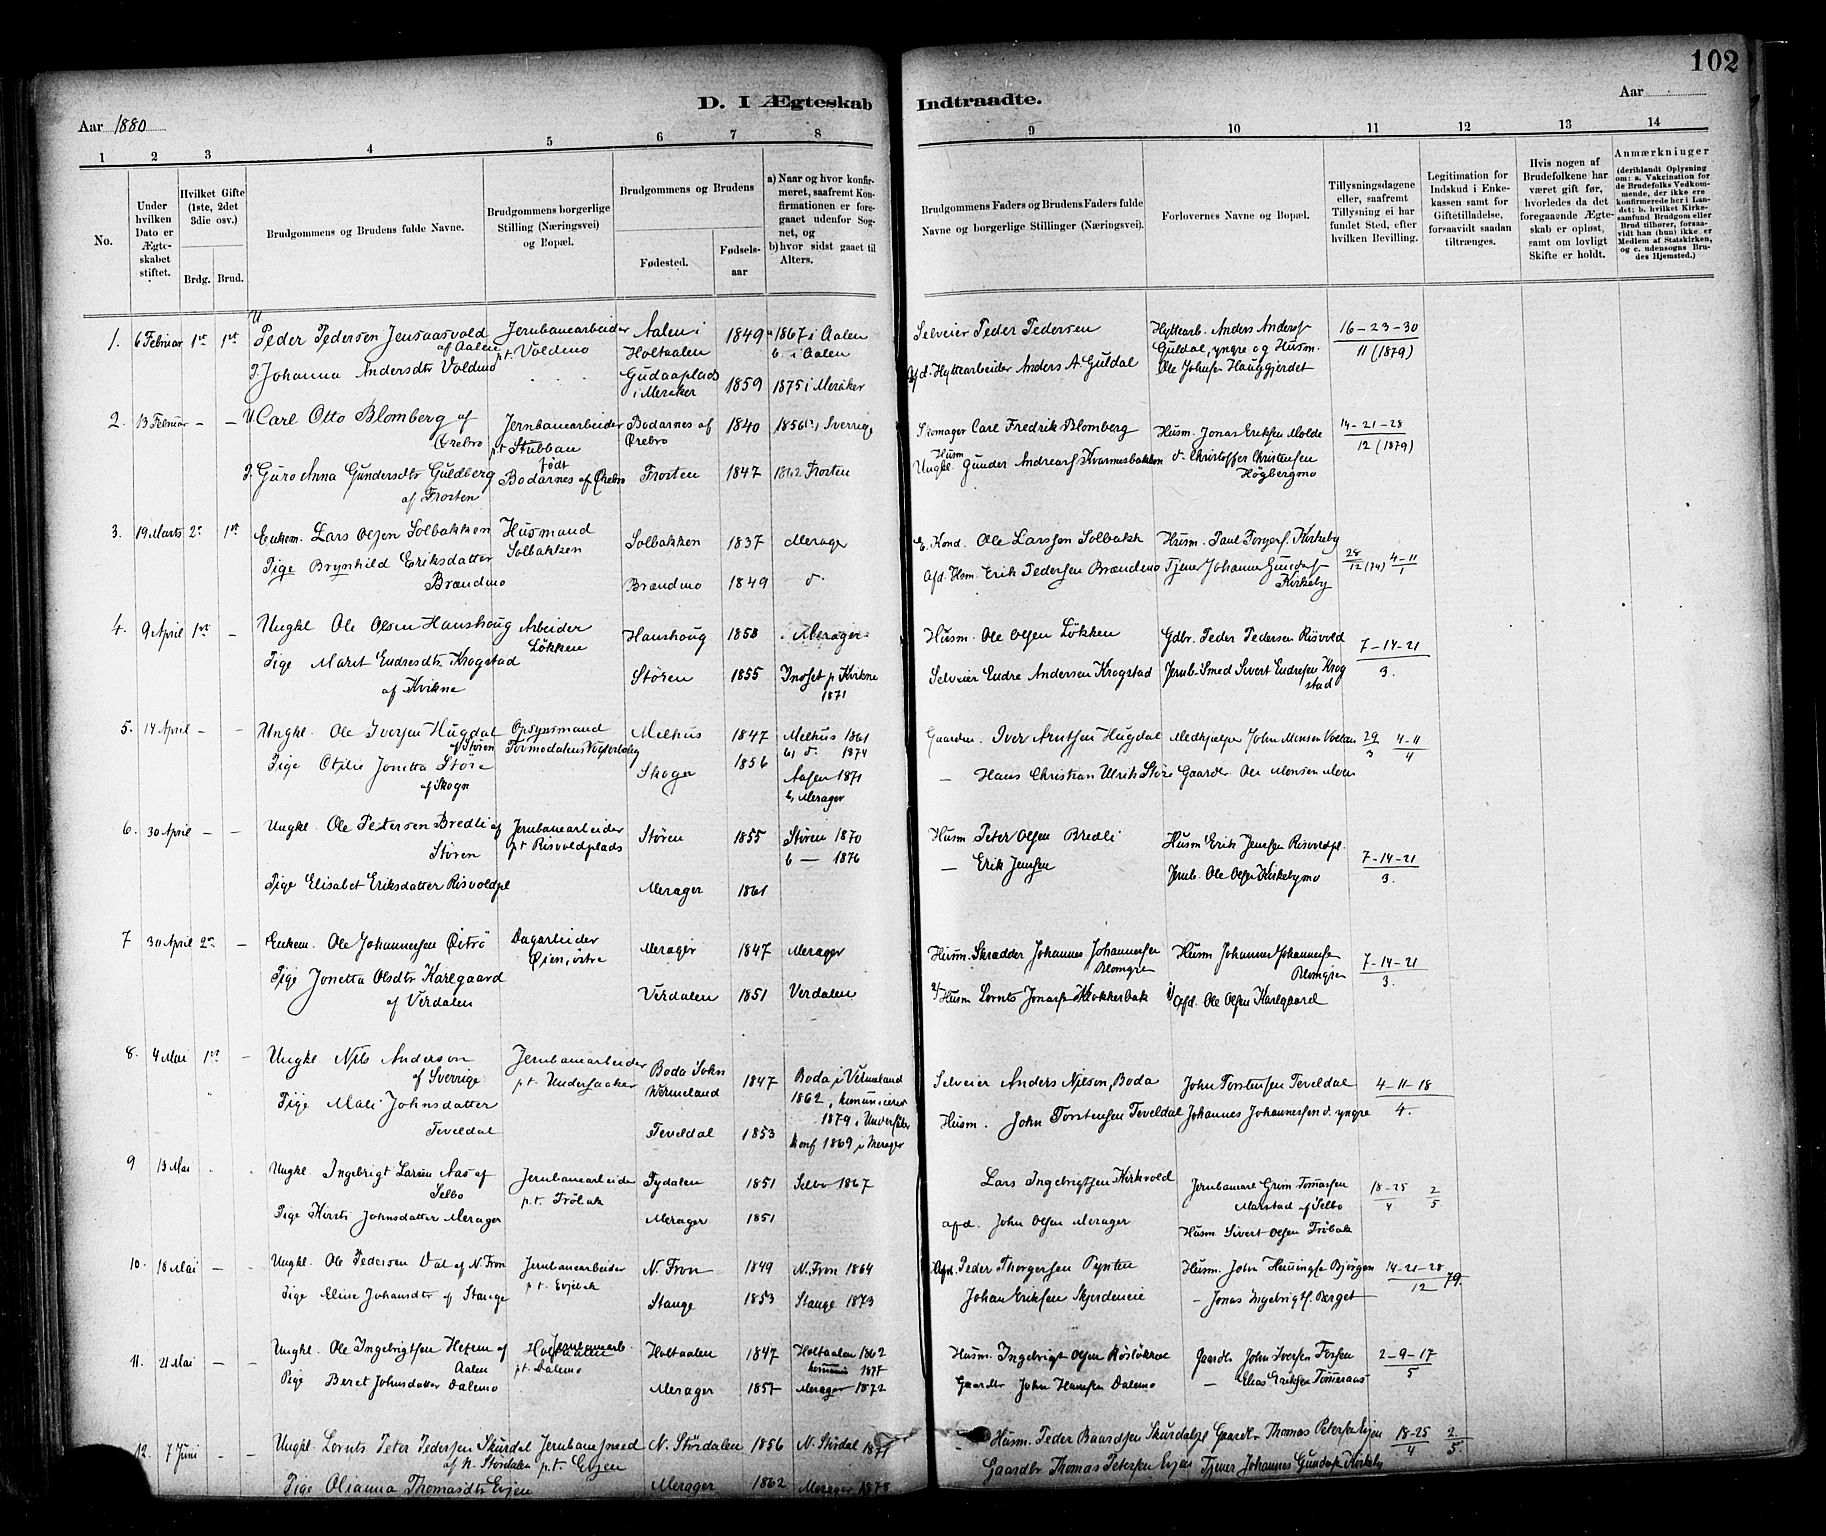 102
D. I Ægteskab Indtraadte.
Aar 1880
Aar
1 2 3 4 5 6 7 8 9 10 11 12 13 14
No.
Under hvilken Dato er Ægteskabet stiftet.
Hvilket Gifte (1ste, 2det 3die osv.)
Brdg. Brud.
Brudgommens og Brudens fulde Navne.
Brudgommens borgerlige Stilling (Næringsvei) og Bopæl.
Brudgommens og Brudens
Fødested.
Fødselsaar
a) Naar og hvor konfirmeret, saafremt Konfirmationen er foregaaet udenfor Sognet, og
b) hvor sidst gaaet til Alters.
Brudgommens Faders og Brudens Faders fulde Navne og borgerlige Stillinger (Næringsvei).
Forlovernes Navne og Bopæl.
Tillysningsdagene eller, saafremt Tillysning ei har fundet Sted, efter hvilken Bevilling.
Legitimation for Indskud i Enkekassen samt for Giftetilladelse, forsaavidt saadan tiltrænges.
Hvis nogen af Brudefolkene har været gift før, hvorledes da det foregaaende Ægteskab er opløst, samt om lovligt Skifte er holdt.
Anmærkninger (deriblandt Oplysning om: a. Vakcination for de Brudefolks Vedkommende, der ikke ere konfirmerede her i Landet; b. hvilket Kirkesamfund Brudgom eller Brud tilhører, forsaavidt han (hun) ikke er Medlem af Statskirken, og c. udensogns Brudes Hjemsted.)
1. 6 Februar 1st 1st U. Peder Pedersen Jensaasvold af Aalen Jernbanearbeider pt. Voldmo Aalen i Holtaalen 1849 a 1867 i Aalen b. i Aalen Selveier Peder Pedersen Hyttearb. Anders Anders. Guldal, yngre og Husm. Ole Johnsen Hauggjerdet 16-23-30 11 (1879)
P. Johanna Andersdtr Voldmo Gudaaplads i Meraker 1859 1875 i Meråker Afd. Hyttearbeider Anders A. Guldal
2. 13 Februar - - U. Carl Otto Blomberg af Ørebro Jernbanearbeider pt. Stubban født Bodarnes af Ørebro Bodarnes af Ørebro 1840 1856 i Sverrig Skomager Carl Fredrik Blomberg Husm. Jonas Eriksen Molde 14-21-28 12 (1879)
P. Guro Anna Gundersdtr Guldberg af Frosten Frosten 1847 1862 Frosten Husm Ungkl. Gunder Andreas. Kvarmesbakken d. Christoffer Christensen Högbergsmo
3. 19 Marts 2. 1st Enkem. Lars Olsen Solbakken Husmand Solbakken Solbakken 1837 Merager Kond. Ole Larssen Solbakk Husm. Paul Kirkeby 28 12 (79) 4-11 1
Pige Brynhild Eriksdatter Brændmo Brændmo 1849 d. Afd. Hsm. Erik Pedersen Brændmo Tjener Johannes Gunders. Kirkeby
4. 9 April 1st - Ungkl Ole Olsen Hanshoug Arbeider Løkken Hanshoug 1858 Merager Husm. Ole Olsen Løkken Gdbr. Peder Pedersen Risvold 7-14-21 3.
Pige Marit Endresdtr Krogstad af Kvikne Støren 1855 Indset p Kvikne 1871 Selveier Endre Andersen Krogstad Jernb. Smed Sivert Endresen Krogstad
5. 14 April - - Ungkl. Ole Iversen Hugdal af Støren Opsynsmand Melhus 1847 Melhus 1861 b, d. 1874 Gaardm. Iver Arntsen Hugdal Medhjælper John Monsen 29 3 4-11 4
Pige Otilie Jonetta Støre af Skogn Skogn 1856 Aasen 1871 b, Merager - Hans Christian Ulrik Støre Gaardbr. Ole Monsen Moen
6. 30 April - - Ungkl. Ole Pettersen Bredli af Støren Jernbanearbeider pt Risvoldplads Støren 1855 Støren 1870 b - 1876 Husm Peter Olsen Bredli Husm Erik Jenssen Risvoldpl. 7-14-21 3.
Pige Elisabet Eriksdatter Risvoldpl Merager 1861 - Erik Jenssen Jernb. Ole Olsen Kirkebymo
7 30 April 2. - Enkem. Ole Johannesen Öströ Dagarbeider Øien, østre Merager 1847 Merager Husm. Skrædder Johannes Johannesen Blomgre Husm Johannes Johannesen Blomgren 7-14-21 3.
Pige Jonetta Olsdtr Karlgaard af Verdalen Verdalen 1851 Verdalen Husm Lornts Jonas. Klokkerbak Afd. Ole Olsen Karlgaard
8. 4 Mai 1st - Ungkl. Nils Anderson af Sverrige Jernbanearbeider pt. Undersaaker Boda Sokn Wermeland 1847 Boda i Vermeland 1862, 1879 i Selveier Anders Nilson, Boda John Torstensen Teveldal 4-11-18 4.
Pige Mali Johnsdatter Teveldal Teveldal 1853 Konf 1869 i Merager Husm. John Torstensen Teveldal Johannes Johannessen d. yngre
9 13 Mai Ungkl. Ingebrigt Larsen Aas af Selbo Jernbanearbeider p.t. Fröbak Tydalen 1851 Selbo 1867 Lars Ingebrigtsen Kirkvold Jernbanearb Grim Tomassen Marstad af Selbo 18-25 4 2 5.
Pige Kirsti Johnsdatter Merager Merager 1851 afd. John Olsen Merager Husm. Sivert Olsen Fröbak
10. 18 Mai - - Ungkl. Ole Pedersen Dal af N. Fron Jernbanearbeider pt. Evjebak N. Fron 1849 N. Fron 1864 Afd. Peder Thorgersen Pynten Husm. John Hemingsen Bjørgen 14-21-28 12 79.
Pige Eline Johansdtr af Stange Stange 1853 Stange 1873 Johan Eriksen - Jonas Ingebrigts. Berget
11. 21 Mai - - Ungkl. Ole Ingebrigtsen Heksem af Aalen Jernbanearb. pt. Dalemo Holtaalen 1847 Holtaalen 1862 1877 Husm. Ingebrigt Olsen Gaardbr John Iversen Fossen 2-9-17 5
Pige Beret Johnsdatter Dalemo Merager 1857 Merager 1872 Gaardbr John Hansen Dalemo - Elias Eriksen Tømmeraas
12. 7 Juni - - Ungkl. Lornts Peter Pedersen Skurdal af N. Stördalen Jernbanesmed p.t. Evjen N. Stördalen 1856 N. Stördal 1871 Husm. Peder Baardsen Skurdalspl Gaardbr Thomas Petersen Evjen 18-25 4 2 5.
Pige Olianna Thomasdtr Evjen Merager 1862 Merager 1878 Gaardbr Thomas Petersen Evjen Tjener Johannes Gunders. Kirkeby